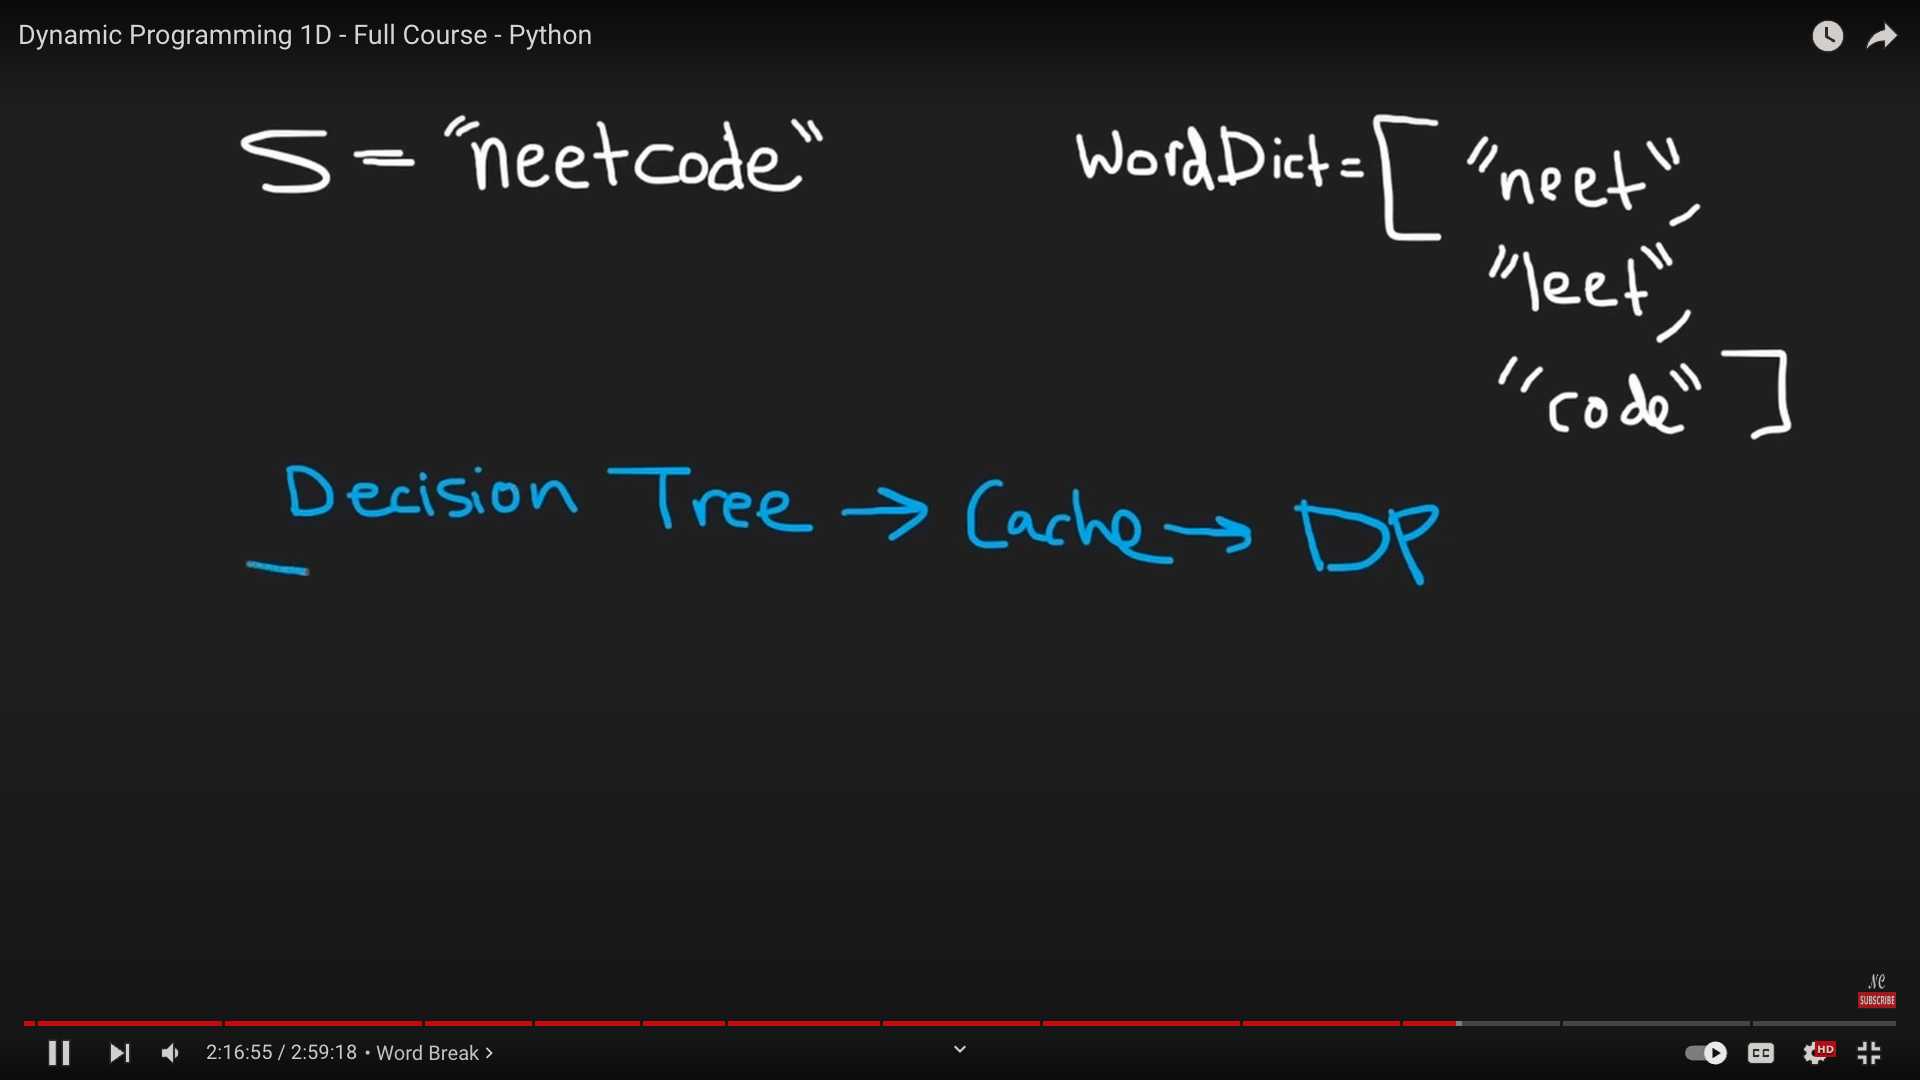 Dynamic Programming 1D - Full Course - Python
S = "neetcode"
WordDict = [ "neet",
"leet",
"code" ]
Decision Tree → Cache → DP
NC
SUBSCRIBE
2:16:55 / 2:59:18 • Word Break >
CC
HD